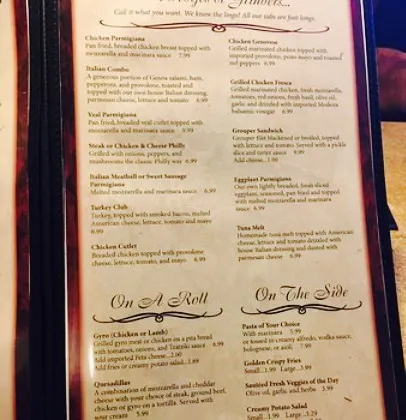 Call it what you want. We know the lingo! All our subs are foot longs.
Chicken Parmigiana
Pan fried, breaded chicken breast topped with
mozzarella and marinara sauce 7.99
Italian Combo
A generous portion of Genoa salami, ham,
pepperoni, and provolone, toasted and
topped with our own house Italian dressing,
parmesan cheese, lettuce and tomato 6.99
Veal Parmigiana
Pan fried, breaded veal cutlet topped with
mozzarella and marinara sauce
Steak or Chicken & Cheese Philly
Grilled with onions, mushrooms, peppers and
the classic Philly way 6.99
Italian Meatball or Sweet Sausage
Parmigiana
Melted mozzarella and marinara sauce 6.99
Turkey Club
Turkey, topped with smoked bacon, melted
American cheese, lettuce, tomato and mayo
6.99
Chicken Cutlet
Breaded chicken topped with provolone
cheese, lettuce, tomato, and mayo. 6.99
Chicken Genovese
Grilled marinated chicken topped with
imported provolone, pesto mayo and roasted
red peppers 6.99
Grilled Chicken Fresca
Grilled marinated chicken, fresh mozzarella,
tomatoes, red onions, fresh basil, olive oil,
garlic and drizzled with imported Modena
balsamic vinegar 6.99
Grouper Sandwich
Grouper filet blackened or broiled, topped
with lettuce and tomato. Served with a pickle
slice and tarter sauce 9.99
Add cheese...
Eggplant Parmigiana
Our own, lightly breaded, fresh sliced
eggplant, seasoned, pan fried and topped
with melted mozzarella and marinara
sauce 6.99
Tuna Melt
Homemade tuna melt topped with American
cheese, lettuce and tomato drizzled with
house Italian dressing and dusted with
parmesan cheese 6.99
On A Roll
Gyro (Chicken or Lamb)
Grilled gyro meat or chicken on a pita bread
with tomatoes, onions, and Tzatziki sauce 6.99
Add imported Feta cheese...
Add fries or creamy potato salad...
Quesadillas
A combination of mozzarella and cheddar
cheese with your choice of steak, ground beef,
chicken or gyro on a tortilla. Served with
sour cream 5.99
On The Side
Pasta of Your Choice
With marinara 5.99
or tossed in creamy alfredo, vodka sauce,
bolognese, or aioli 7.99
Golden Crispy Fries
Small...1.99 Large...3.99
Sautéed Fresh Veggies of the Day
Olive oil, garlic and herbs
Creamy Potato Salad
Small...1.99 Large...